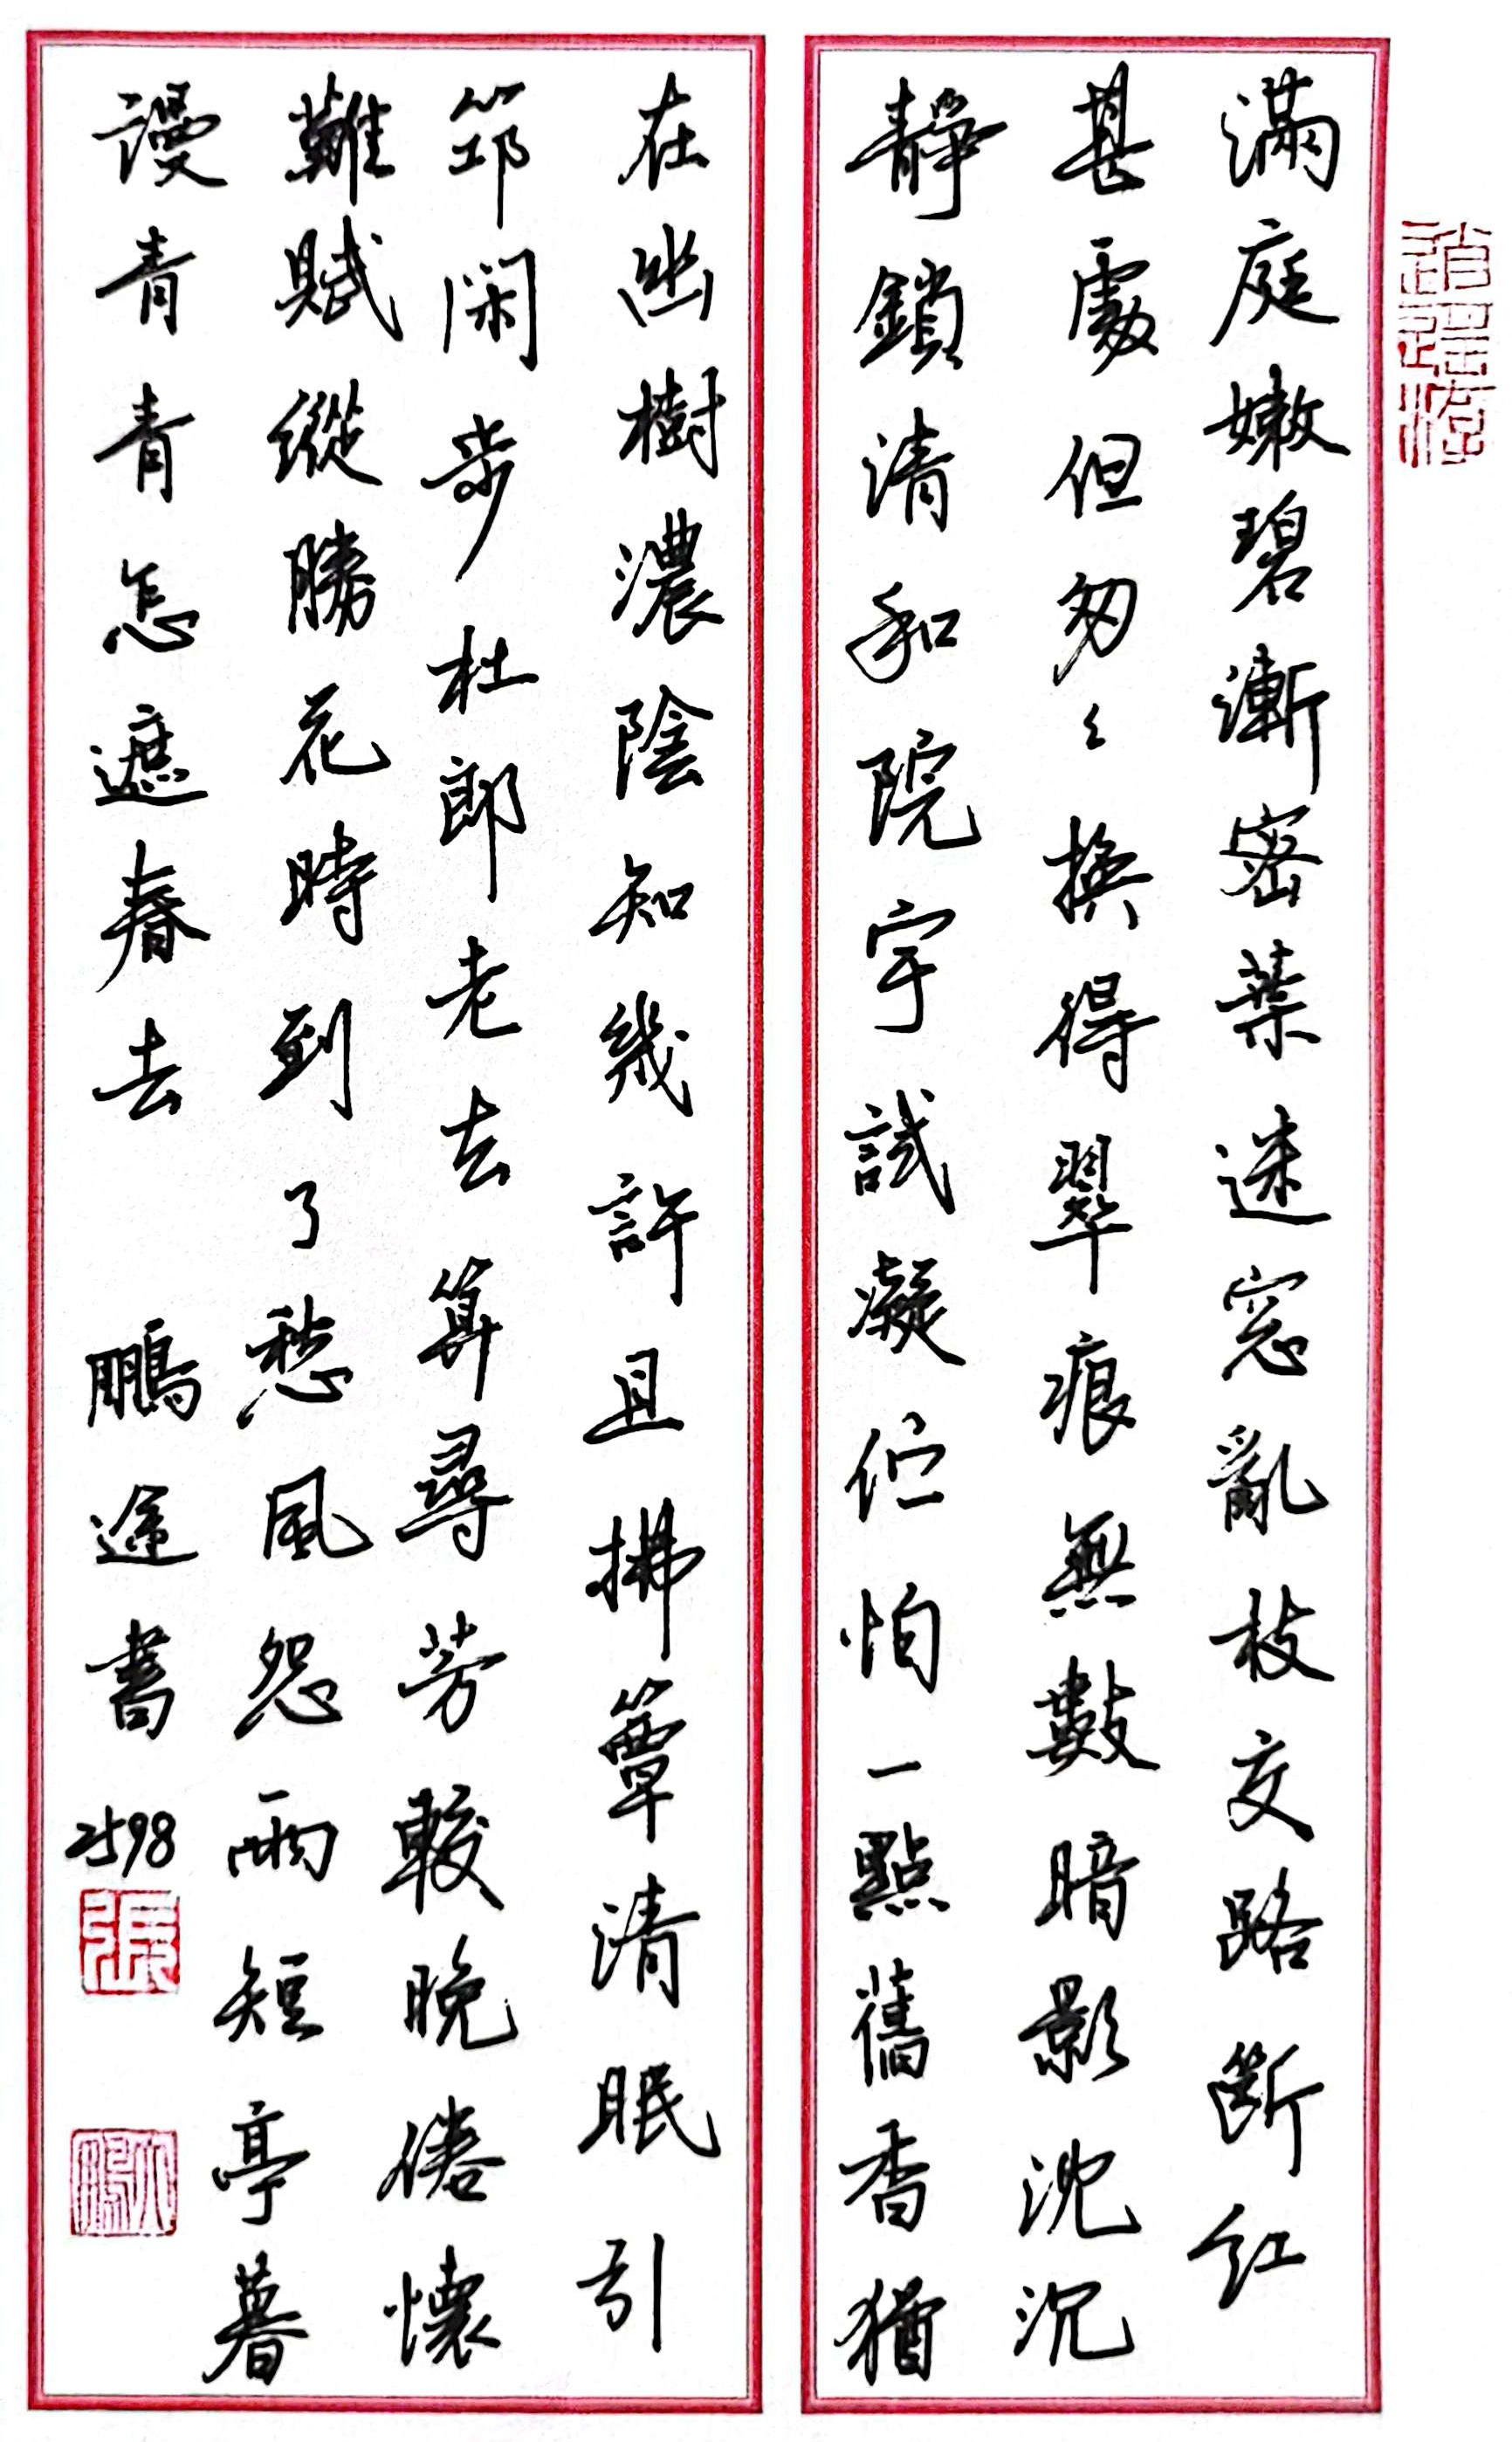 滿庭嫩碧漸密葉迷窓亂枝交路斷紅
甚處但匆々換得翠痕無數暗影沈沉
靜鎖清和院宇試凝伫怕一點舊香猶
在幽樹濃陰知幾許且拂簟清眠引
筇閑步杜郎老去算尋芳較晚倦懷
難賦縱勝花時到了愁風怨雨短亭暮
謾青青怎遮春去 鵬途書 2598
張